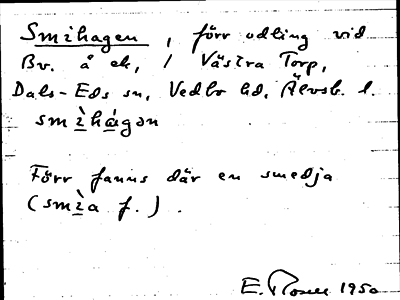 Smihagen, förr odling vid
Bv. å ek, / Västra Torp,
Dals-Eds sn, Vedbo hd, Älvsb. l.
smìhágən
Förr fanns där en smedja
(smìa f.).
E. Rosell 1950